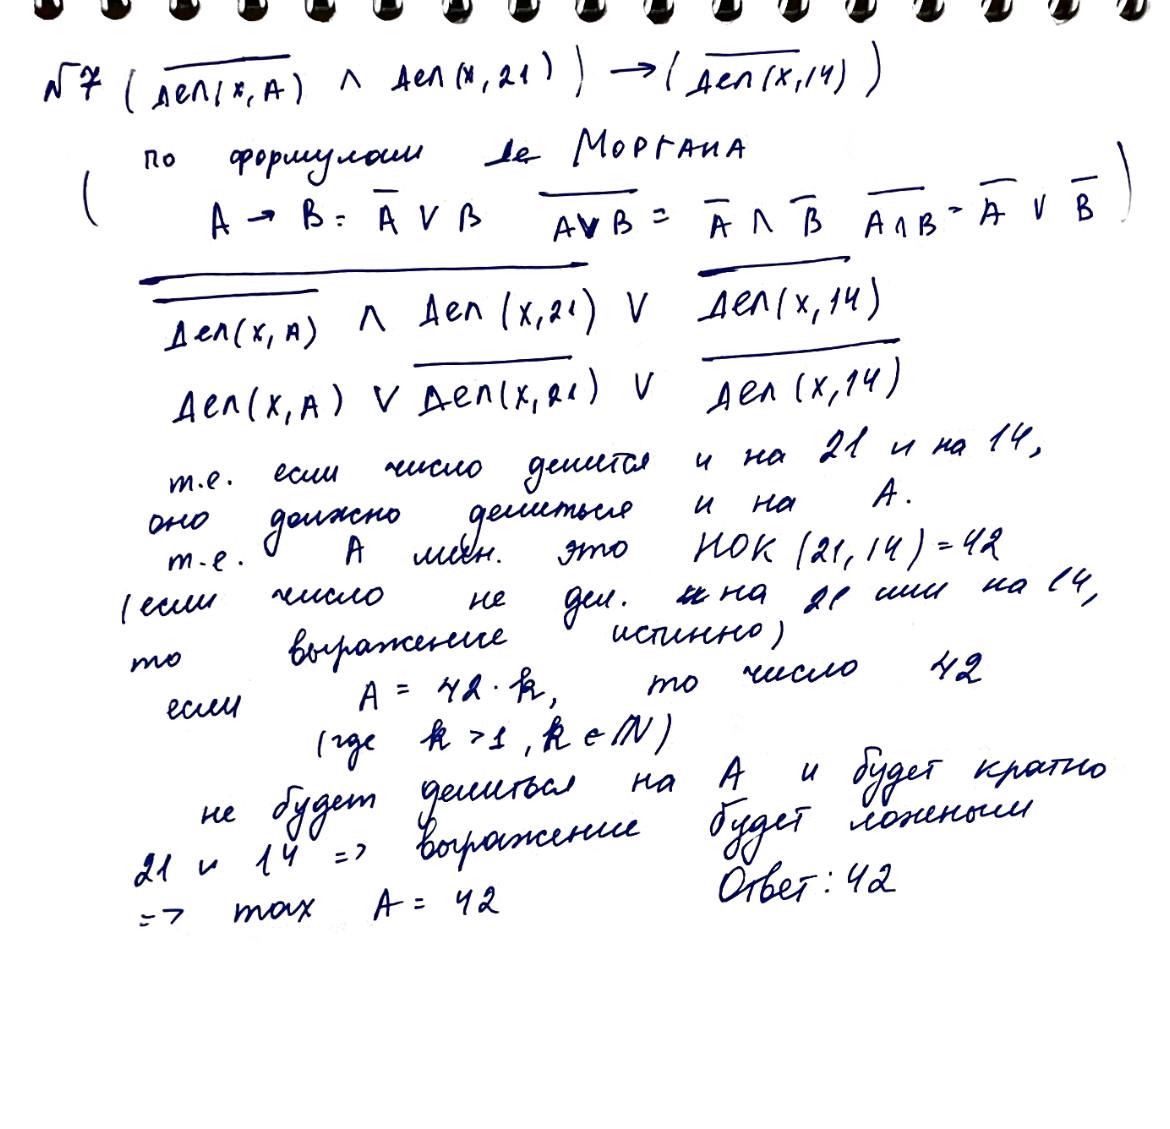 №7 (¬Дел(x, A) ∧ Дел(x, 21)) → (¬Дел(x, 14))
по формулам де Моргана
( A → B = ¬A ∨ B ¬(A∨B) = ¬A ∧ ¬B ¬(A∧B) = ¬A ∨ ¬B )
¬(¬Дел(x, A) ∧ Дел(x, 21)) ∨ ¬Дел(x, 14)
Дел(x, A) ∨ ¬Дел(x, 21) ∨ ¬Дел(x, 14)
т.е. если число делится и на 21 и на 14,
оно должно делиться и на A.
т.е. A мин. это НОК (21, 14) = 42
(если число не дел. на 21 или на 14,
то выражение истинно)
если A = 42 · k, то число 42
(где k > 1, k ∈ ℕ)
не будет делиться на A и будет кратно
21 и 14 => выражение будет ложным
=> max A = 42 Ответ: 42